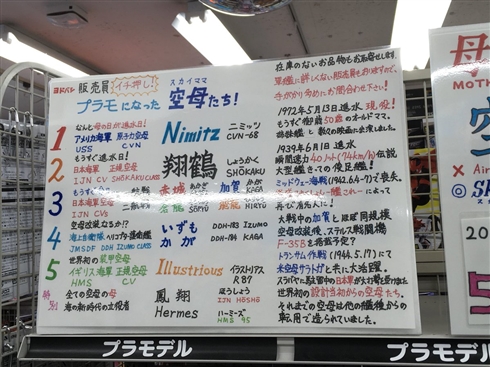 ヨドバシ 販売員 イチ押し!
プラモになった 空母たち!
スカイママ
在庫のないお品物もお取寄せします。
軍艦に詳しくない販売員もおりますので、
手がかり求めたお問合わせに!
1 なんと母の日が進水日!
アメリカ海軍 原子力空母
USS CVN
Nimitz ニミッツ
CVN-68
1972年5月13日進水 現役!
もうすぐ御歳50歳のオールドママ。
姉妹艦も数々の映画に出演しました。
2 もうすぐ進水日!
日本海軍 正規空母
IJN CV SHŌKAKU CLASS
翔鶴 しょうかく
SHŌKAKU
1939年6月1日進水
瞬間速力40ノット(74km/h)伝説
大型艦きっての俊足艦。
3 もうすぐ
日本海軍 空母
IJN CVs
赤城 加賀
蒼龍 飛龍
ミッドウェー海戦(1942.6.4-7)で喪失。
4 空母改装なるか!?
海上自衛隊 ヘリコプター護衛艦
JMSDF DDH IZUMO CLASS
いずも DDH-183 IZUMO
かが DDH-184 KAGA
大戦中の加賀とほぼ同規模
空母改装後、ステルス戦闘機
F-35Bを搭載予定?
5 世界初の装甲空母
イギリス海軍 正規空母
HMS CV
Illustrious イラストリアス
R 87
トランサム作戦(1944.5.17)にて
米空母サラトガと共に大活躍。
スラバヤに駐留中の日本軍が大打撃を受けました
特別 全ての空母の母
海の新時代の立役者
鳳翔 ほうしょう
IJN HŌSHŌ
Hermes ハーミーズ
HMS 95
世界初の設計当初からの空母たち。
それまでの空母は他の艦種からの
転用で造られていました。
プラモデル
プラモデル
母
MOTH
空